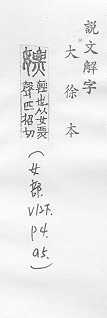 說文解字
大徐本
嫖
輕也从女票
聲匹招切
(女部. V12下. p4. a5.)